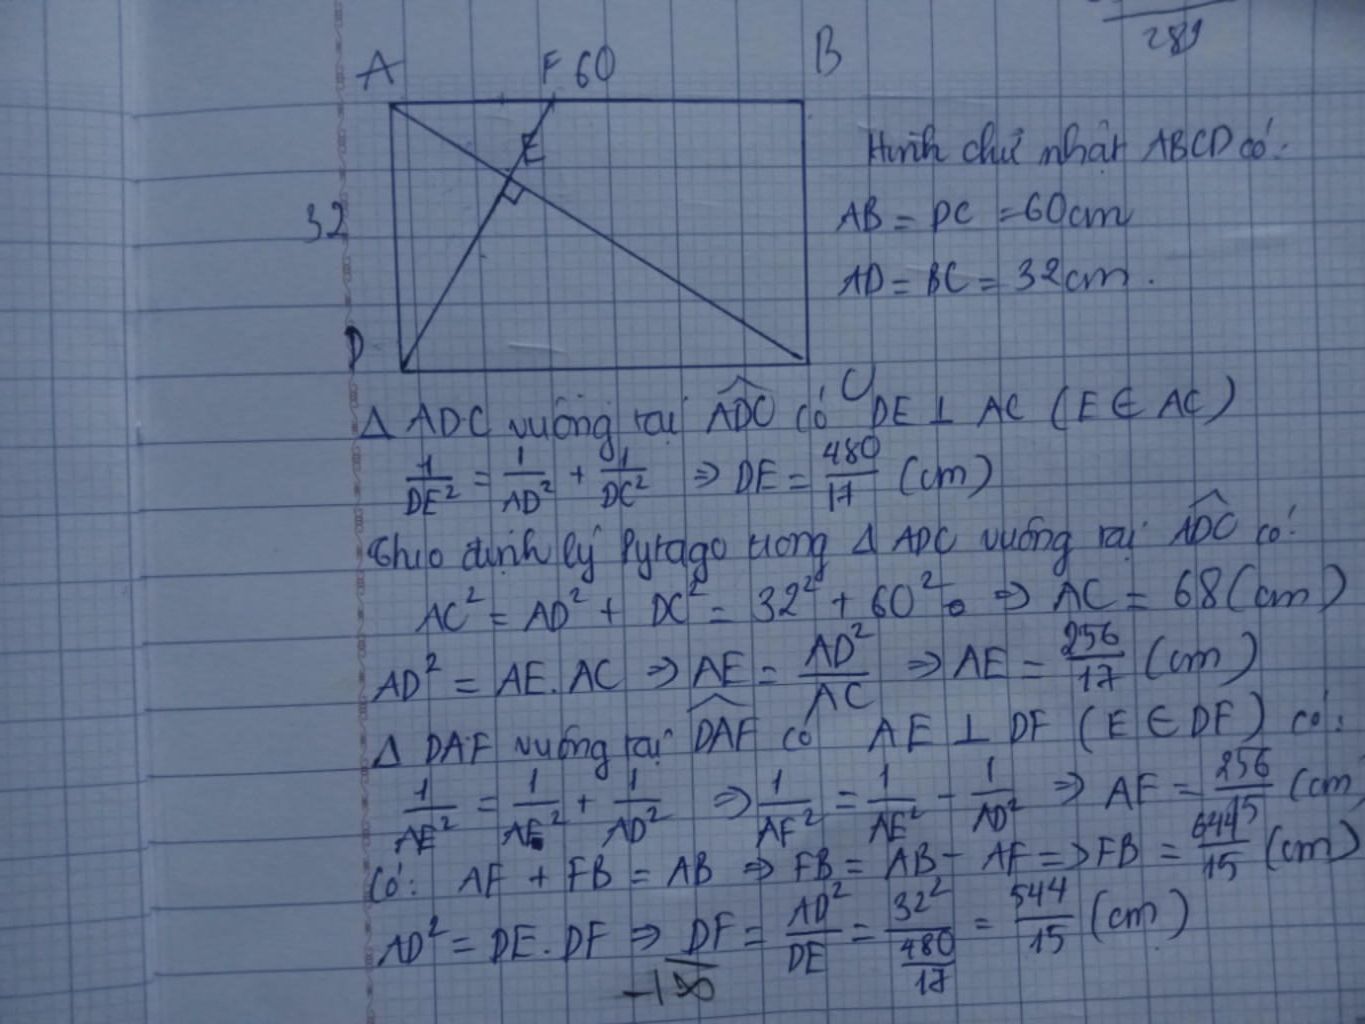 289
A F 60 B
E
32
D C
Hình chữ nhật ABCD có:
AB = DC = 60cm
AD = BC = 32cm.
Δ ADC vuông tại ADC có DE ⊥ AC (E ∈ AC)
1/DE² = 1/AD² + 1/DC² ⇒ DE = 480/17 (cm)
Theo định lý Pytago trong Δ ADC vuông tại ADC có:
AC² = AD² + DC² = 32² + 60² ⇒ AC = 68(cm)
AD² = AE.AC ⇒ AE = AD²/AC ⇒ AE = 256/17 (cm)
Δ DAF vuông tại DAF có AE ⊥ DF (E ∈ DF) có:
1/AE² = 1/AF² + 1/AD² ⇒ 1/AF² = 1/AE² - 1/AD² ⇒ AF = 256/15 (cm
Có: AF + FB = AB ⇒ FB = AB - AF => FB = 644/15 (cm)
AD² = DE.DF ⇒ DF = AD²/DE = 32²/(480/17) = 544/15 (cm)